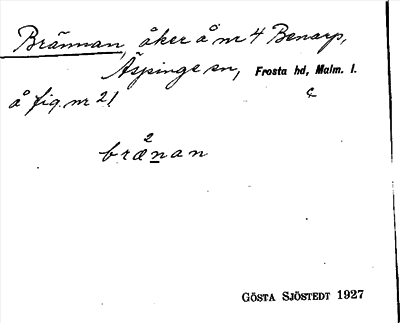 Brännan, åker å nr 4 Benarp,
Äspinge sn, Frosta hd, Malm. l.
å fig. nr 21
2
brænan
GÖSTA SJÖSTEDT 1927